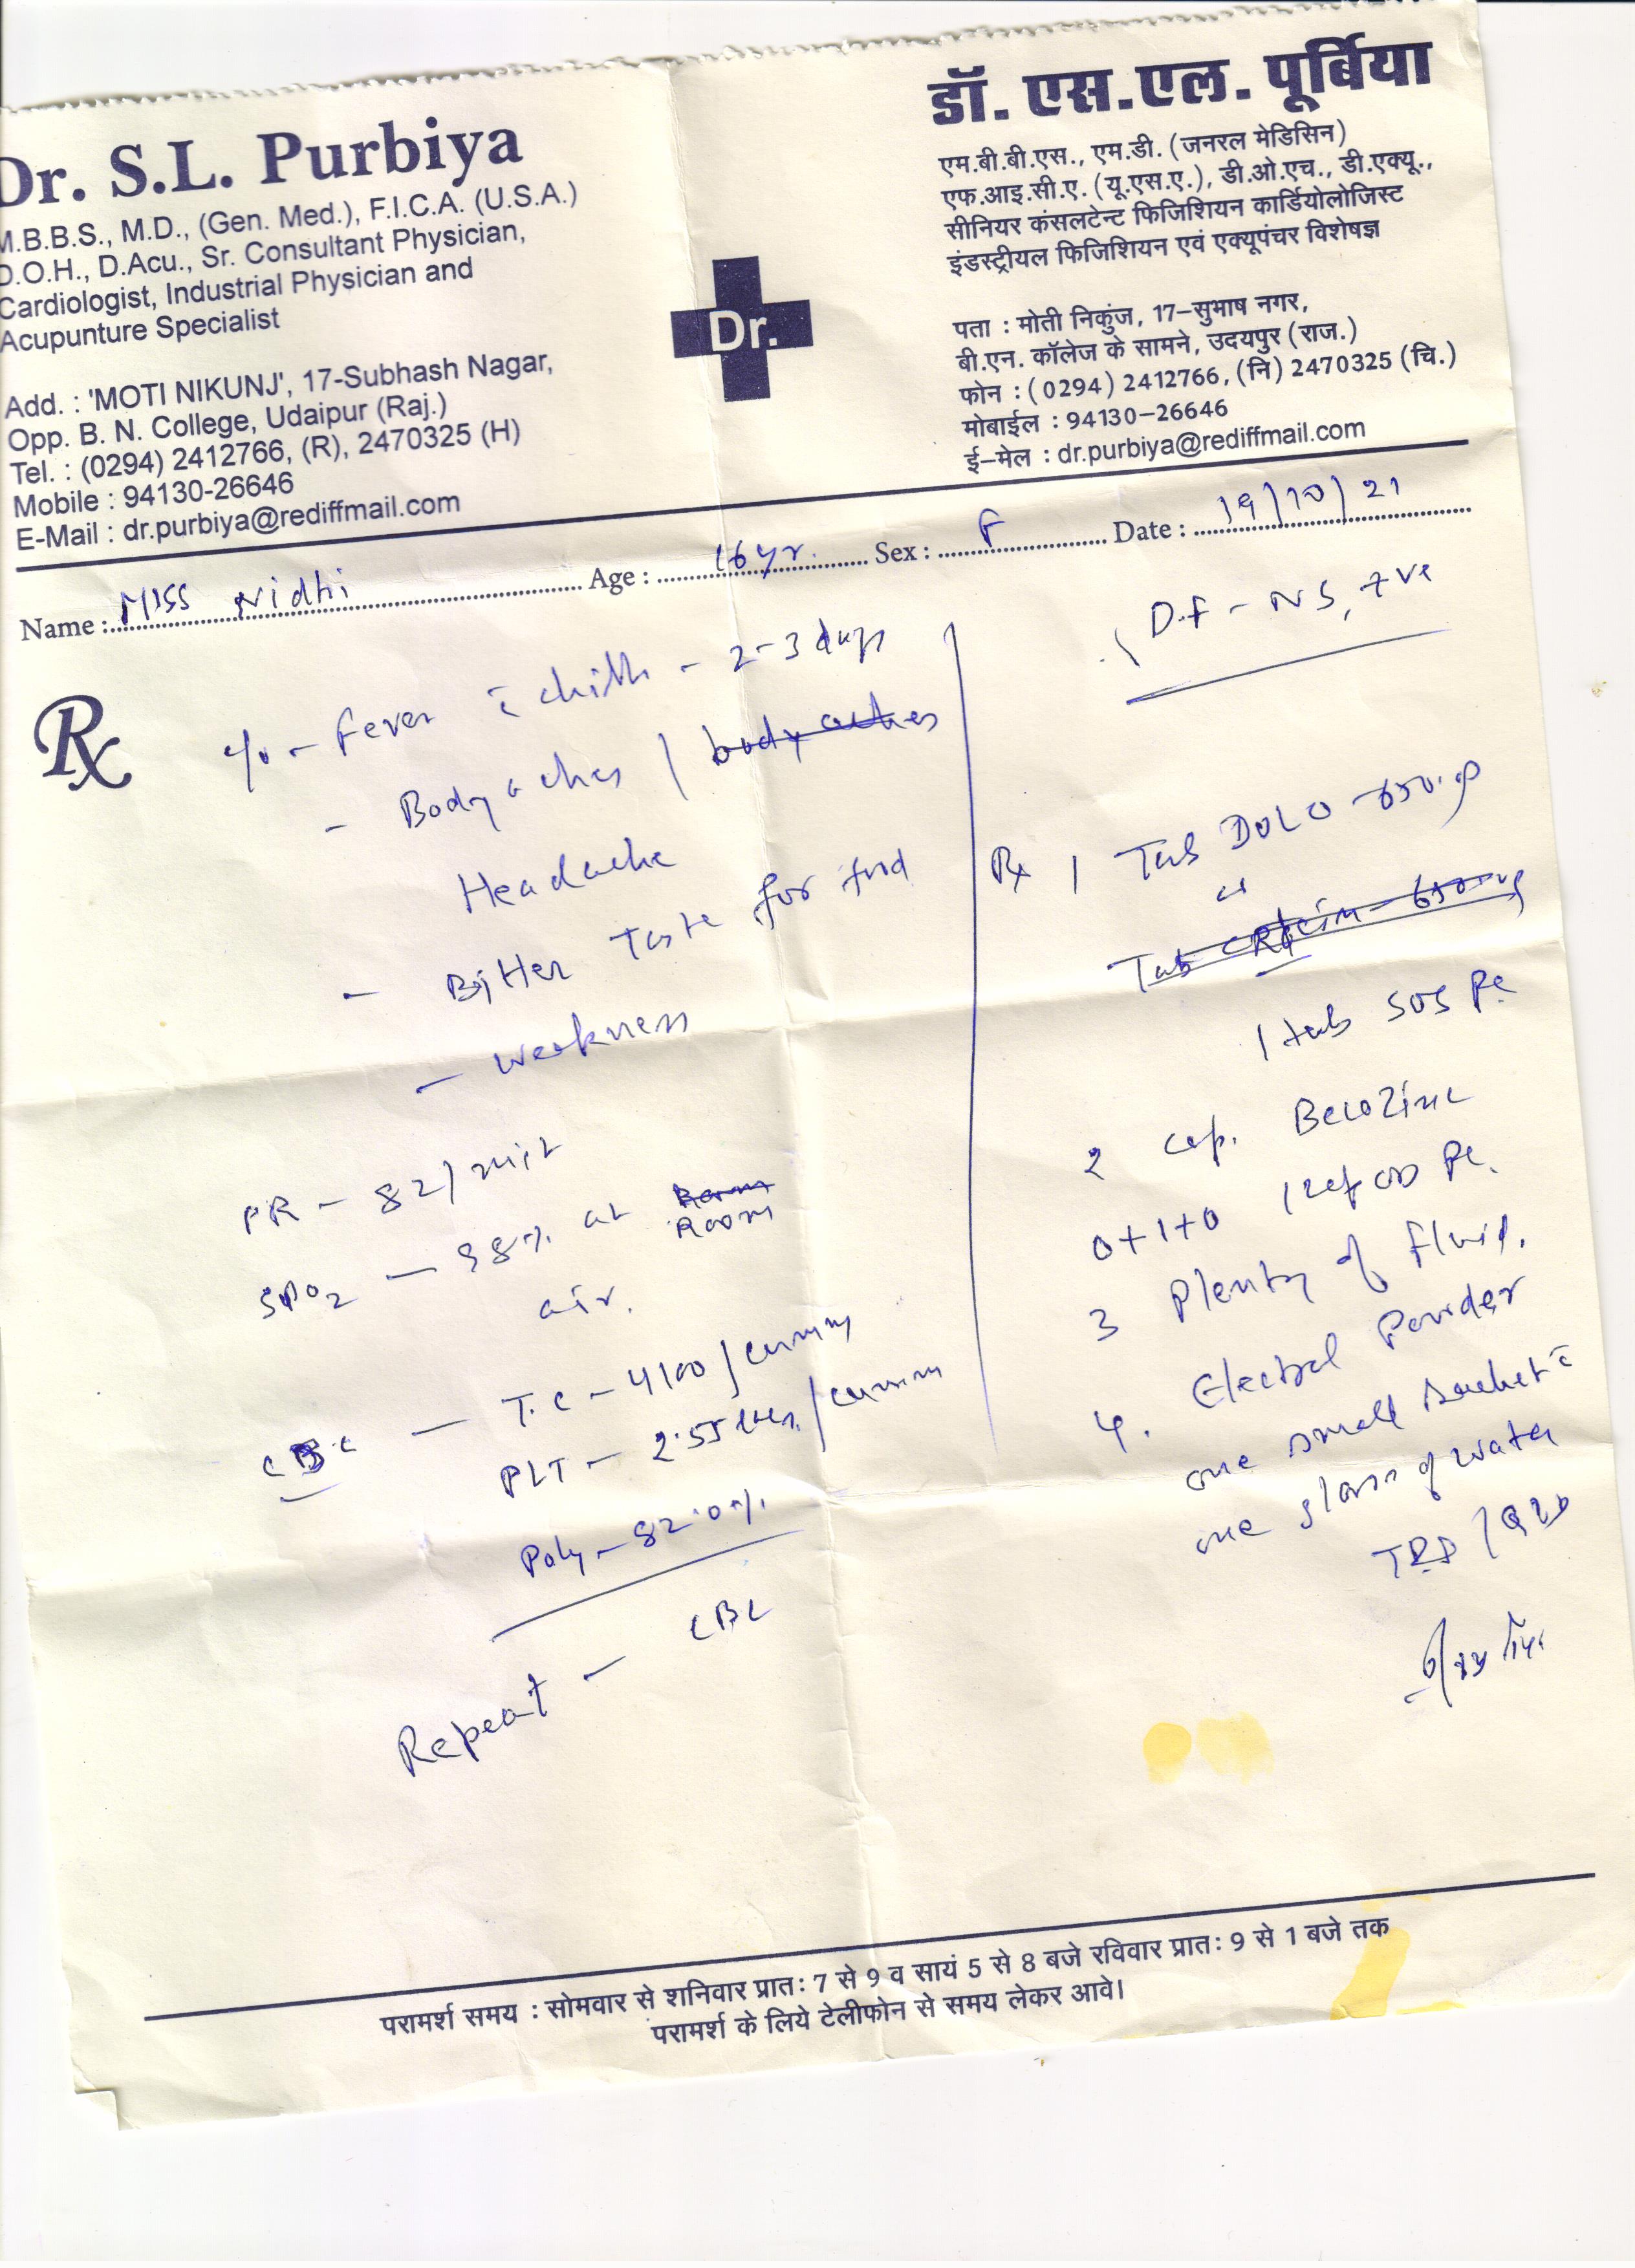 Dr. S.L. Purbiya
M.B.B.S., M.D., (Gen. Med.), F.I.C.A. (U.S.A.)
D.O.H., D.Acu., Sr. Consultant Physician,
Cardiologist, Industrial Physician and
Acupunture Specialist
Add. : 'MOTI NIKUNJ', 17-Subhash Nagar,
Opp. B. N. College, Udaipur (Raj.)
Tel. : (0294) 2412766, (R), 2470325 (H)
Mobile : 94130-26646
E-Mail : dr.purbiya@rediffmail.com
Dr.
डॉ. एस.एल. पूर्बिया
एम.बी.बी.एस., एम.डी. (जनरल मेडिसिन)
एफ.आइ.सी.ए. (यू.एस.ए.), डी.ओ.एच., डी.एक्यू.,
सीनियर कंसलटेन्ट फिजिशियन कार्डियोलोजिस्ट
इंडस्ट्रीयल फिजिशियन एवं एक्यूपंचर विशेषज्ञ
पता : मोती निकुंज, 17-सुभाष नगर,
बी.एन. कॉलेज के सामने, उदयपुर (राज.)
फोन : (0294) 2412766, (नि) 2470325 (चि.)
मोबाईल : 94130-26646
ई-मेल : dr.purbiya@rediffmail.com
Name : Miss Nidhi Age : 16 yr. Sex : F Date : 19/10/21
Rx
c/o - Fever c̄ chills - 2-3 days
- Bodyaches / body aches
Headache
- Bitter Taste for food
- weakness
PR - 82/min
SPO2 - 98% at Room
Room
air.
CBC - T.C - 4100/cumm
PLT - 2.55 /cumm
Poly - 82.0%
Repeat - CBC
D.F - NS1 +ve
Rx 1 Tab DOLO - 650mg
Tab Crocin - 650mg
1 tab SOS Pc
2 Cap. Becozinc
0+1+0 1 cap OD Pc.
3 Plenty of fluid.
4. Electral Powder
one small sachet c̄
one glass of water
TDS / QID
परामर्श समय : सोमवार से शनिवार प्रातः 7 से 9 व सायं 5 से 8 बजे रविवार प्रातः 9 से 1 बजे तक
परामर्श के लिये टेलीफोन से समय लेकर आवे।